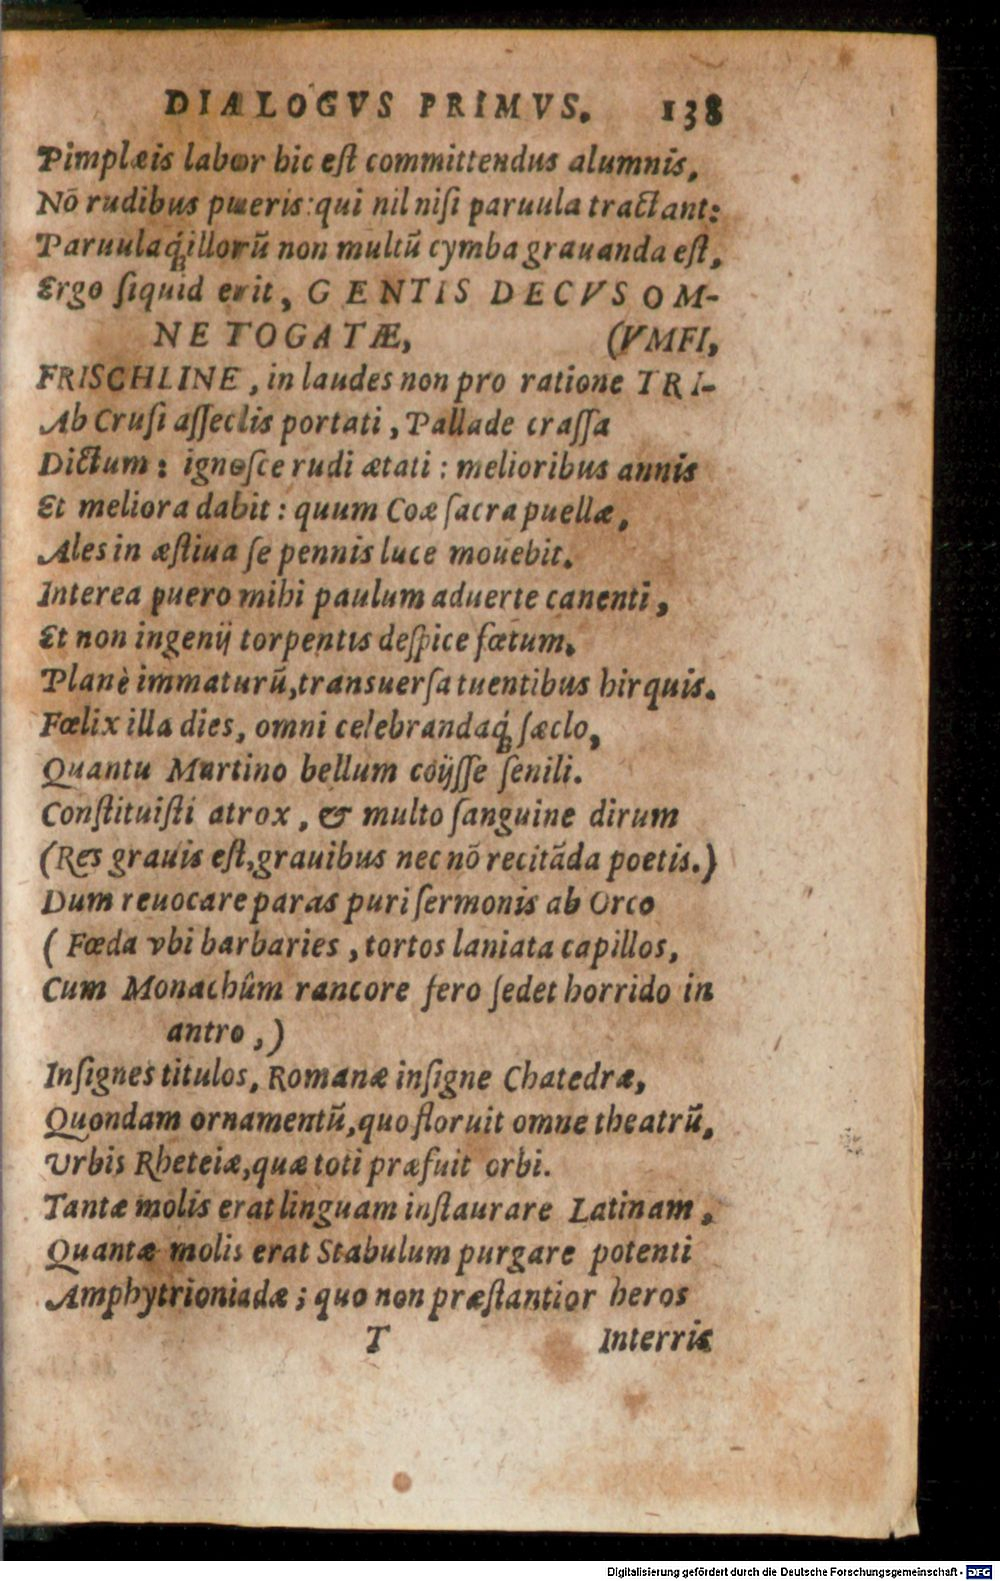 DIALOGVS PRIMVS. 138
Pimplæis labor hic eſt committendus alumnis,
Nõ rudibus pueris: qui nil niſi paruula tractant:
Paruulaq́ꝫ illorũ non multũ cymba grauanda eſt,
Ergo ſiquid erit, GENTIS DECVS OM-
NE TOGATÆ, (VMFI,
FRISCHLINE, in laudes non pro ratione TRI-
Ab Cruſi aſſeclis portati, Pallade craſſa
Dictum: ignoſce rudi ætati: melioribus annis
Et meliora dabit: quum Coæ ſacra puellæ,
Ales in æſtiua ſe pennis luce mouebit.
Interea puero mihi paulum aduerte canenti,
Et non ingenij torpentis deſpice fœtum.
Planè immaturũ, transuerſa tuentibus hirquis.
Fœlix illa dies, omni celebrandaq́ꝫ ſæclo,
Quantu Martino bellum coijſſe ſenili.
Conſtituiſti atrox, & multo ſanguine dirum
(Res grauis eſt, grauibus nec nõ recitãda poetis.)
Dum reuocare paras puri ſermonis ab Orco
(Fœda vbi barbaries, tortos laniata capillos,
Cum Monachûm rancore fero ſedet horrido in
antro,)
Inſignes titulos, Romanæ inſigne Chatedræ,
Quondam ornamentũ, quo floruit omne theatrũ.
Vrbis Rheteiæ, quæ toti præfuit orbi.
Tantæ molis erat linguam inſtaurare Latinam,
Quantæ molis erat Stabulum purgare potenti
Amphytrioniadæ; quo non præſtantior heros
T Interris
Digitalisierung gefördert durch die Deutsche Forschungsgemeinschaft - DFG